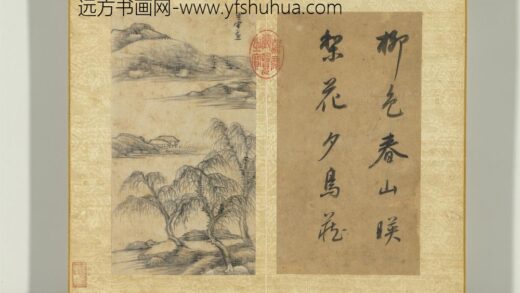 远方书画网-www.yfshuhua.com
柳色春山暎
梨花夕鳥蔵